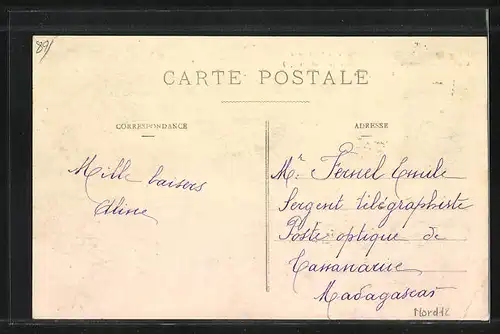 89/
CARTE POSTALE
CORRESPONDANCE
ADRESSE
Mille baisers
Aline
Mr. Fernel Emile
Sergent télégraphiste
Poste optique de
Madagascar